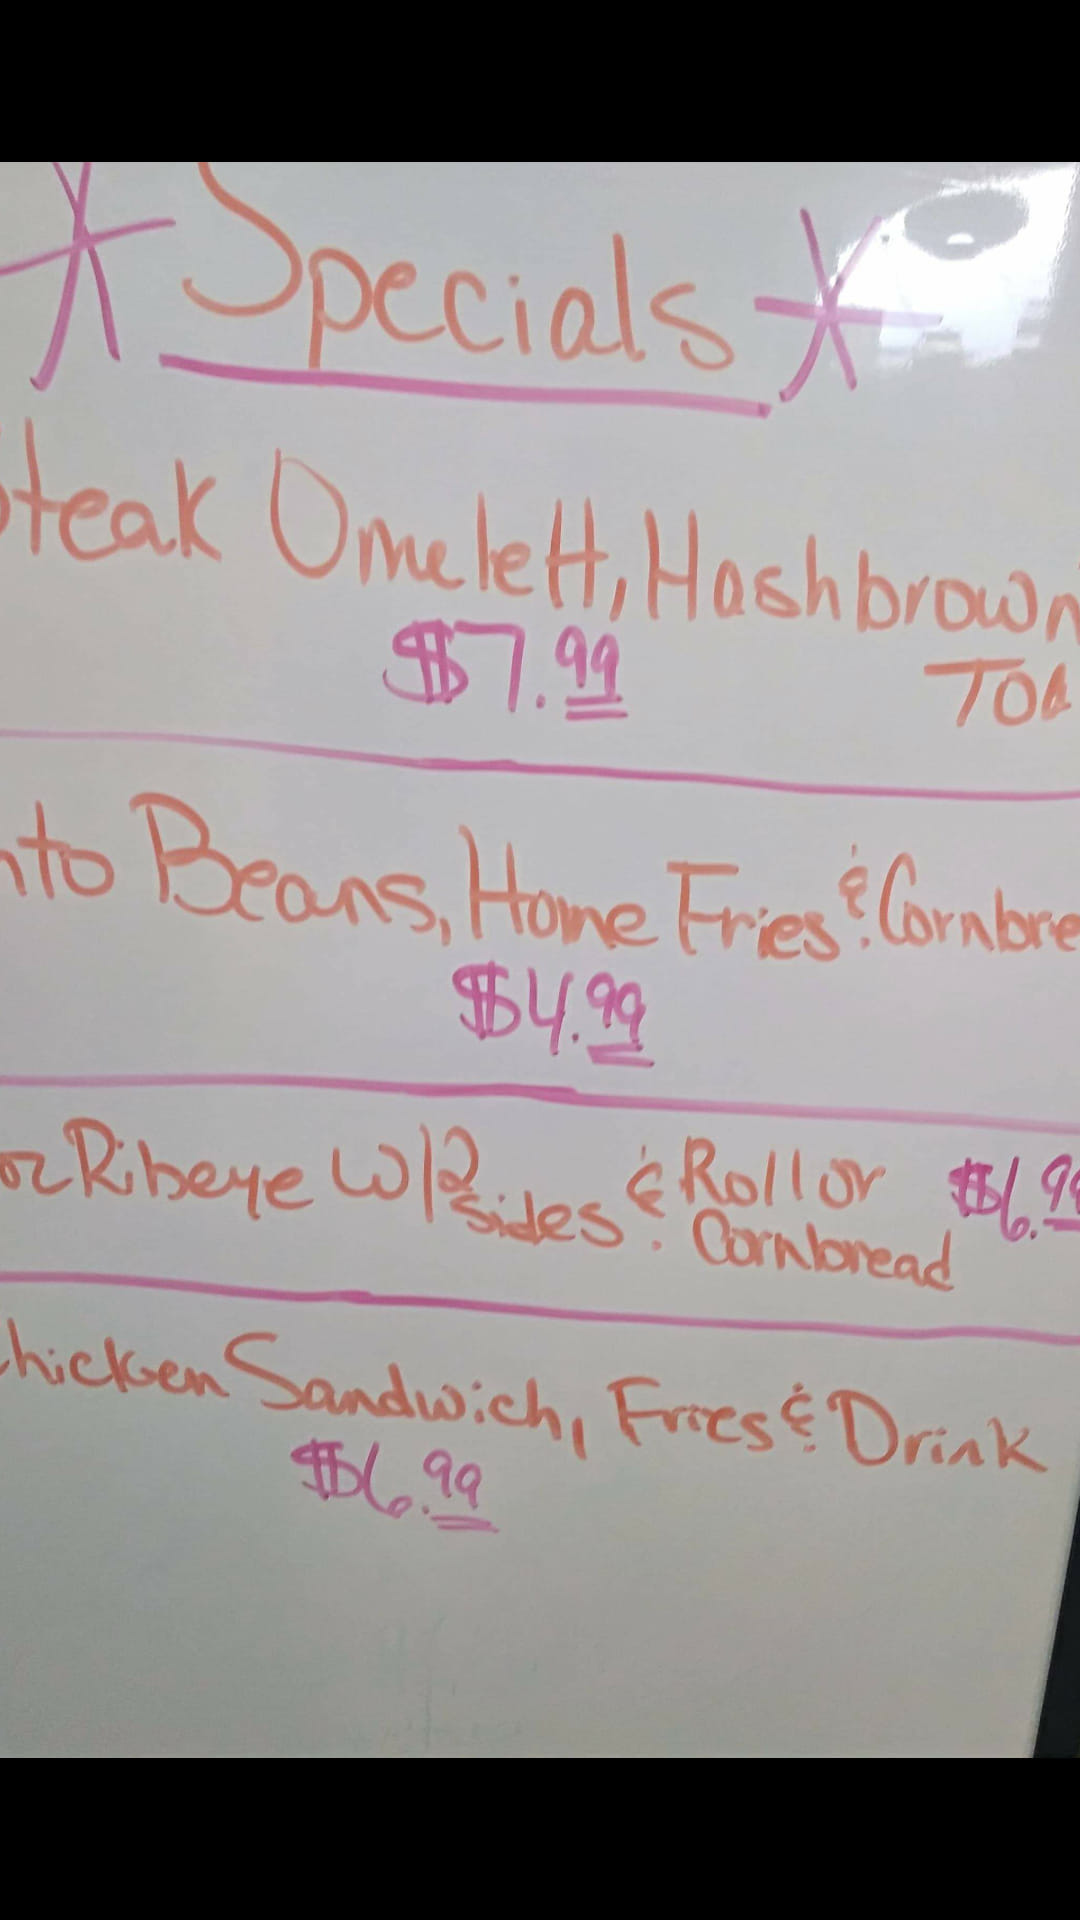 * Specials *
Steak Omelett, Hashbrown
$7.99 TOA
nto Beans, Home Fries & Cornbre
$4.99
oz Ribeye W/2 sides & Roll or Cornbread $6.99
Chicken Sandwich, Fries & Drink
$6.99